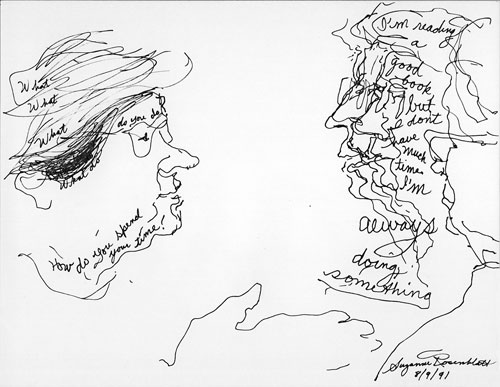 What
What
What
do you do
What do
How do you spend
your time?
I'm reading
a
good
book
but
I dont
have
much
time
I'm
always
doing
something
Suzanne Rosenblatt
8/9/91